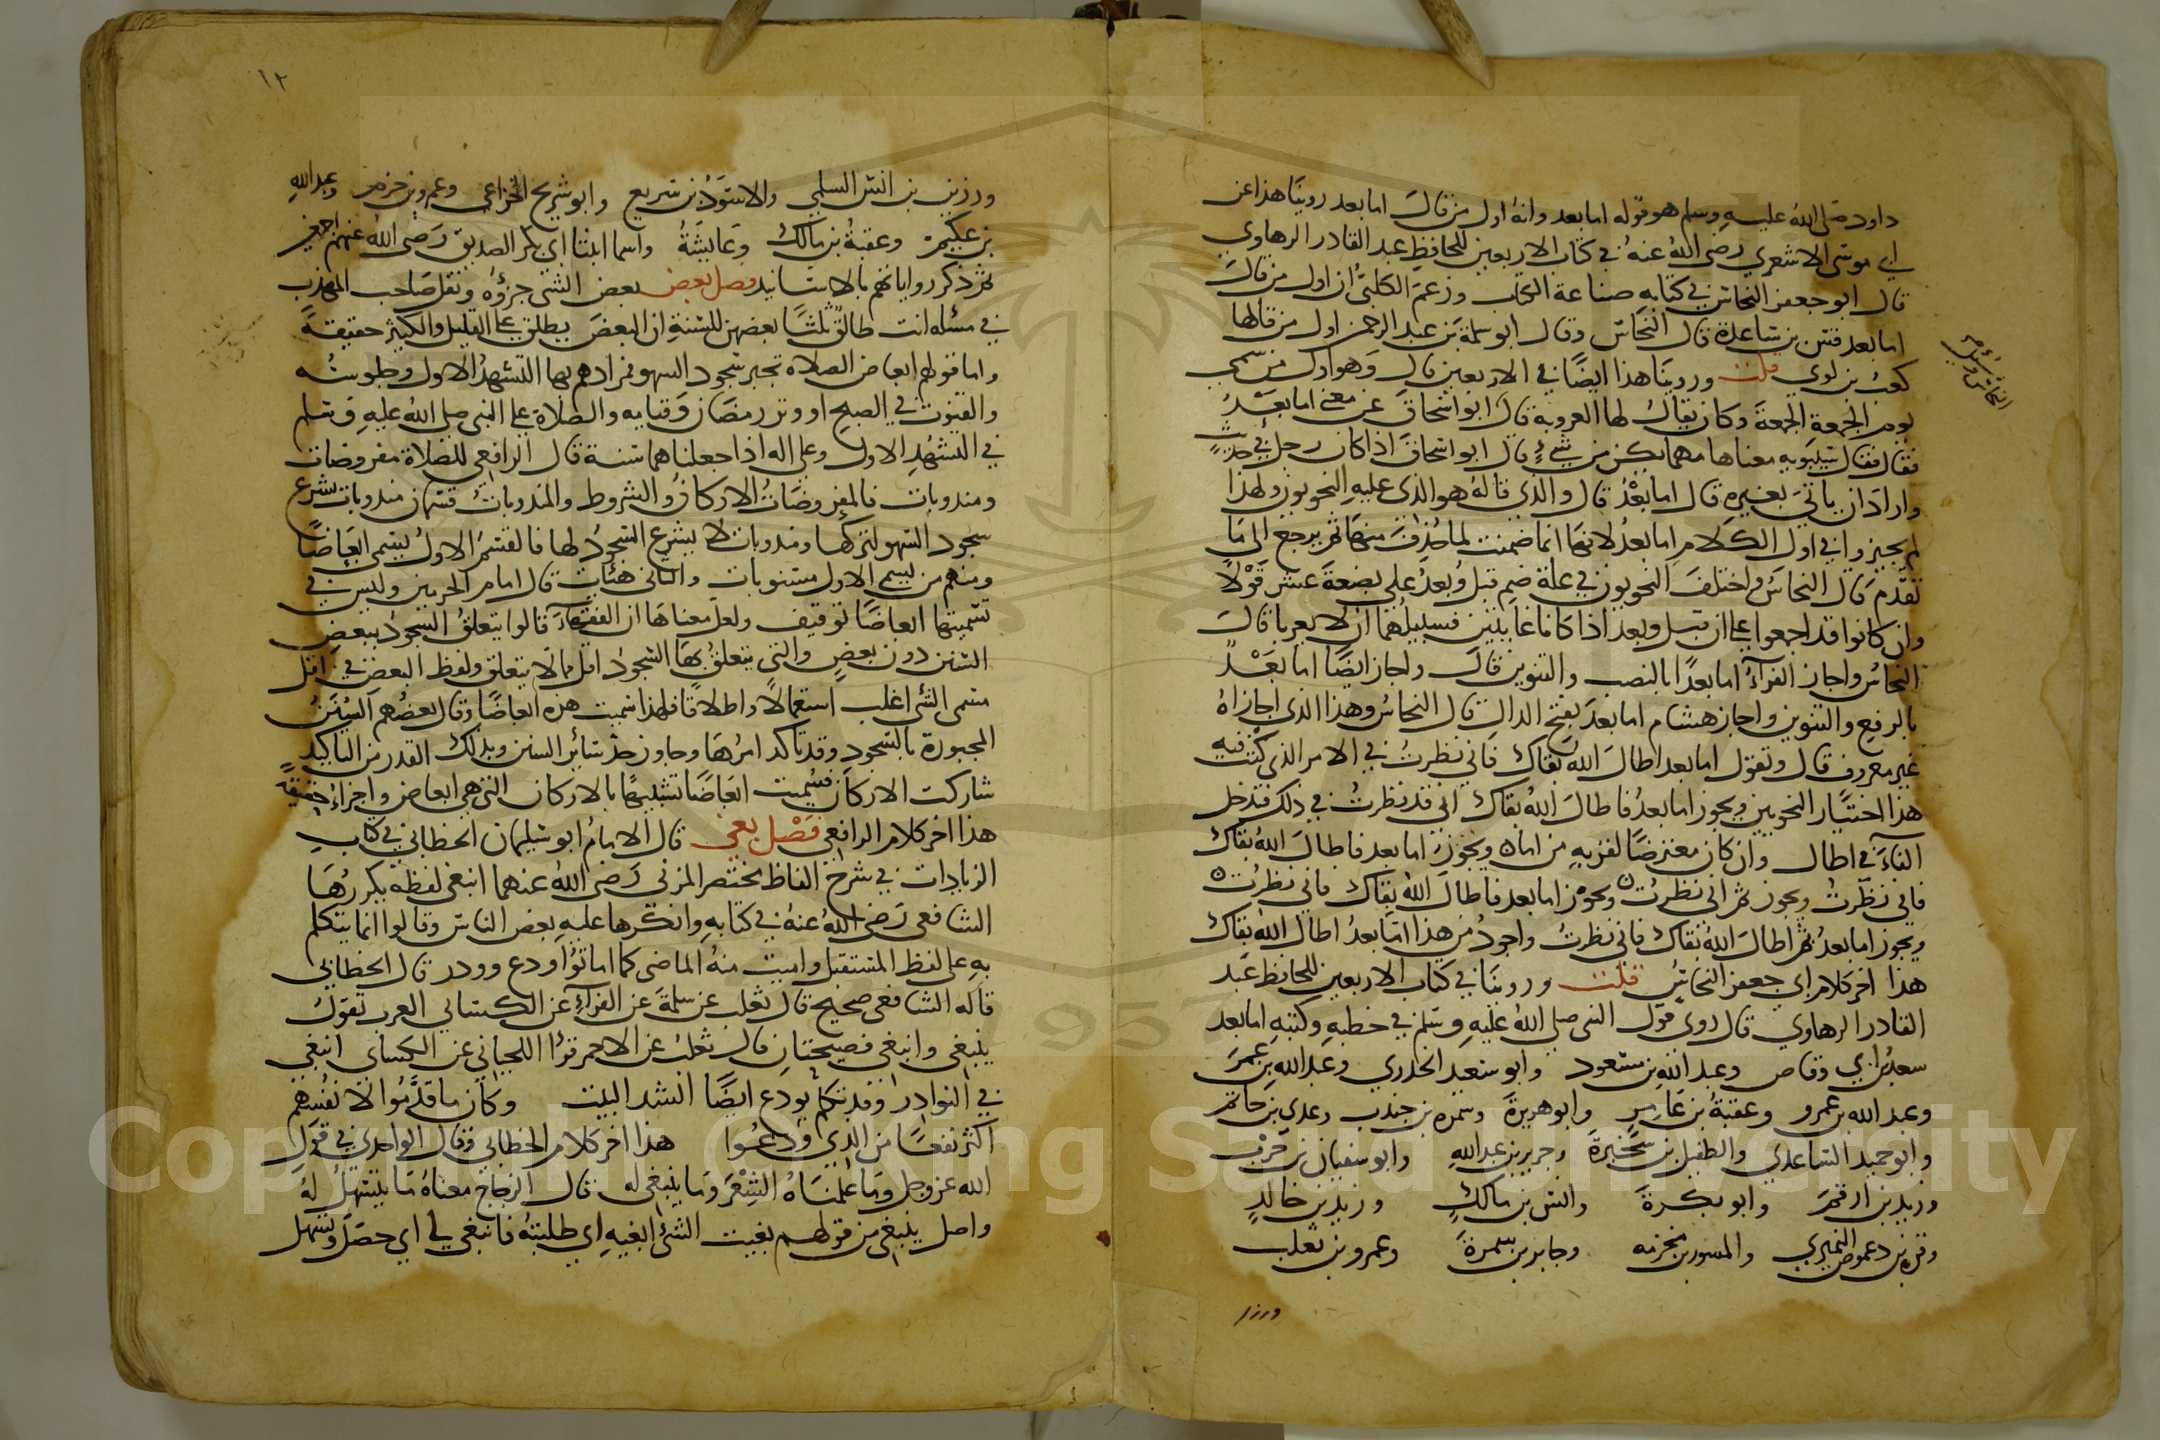 داود صلى الله عليه وسلم هو قوله اما بعد وانه اول من قال اما بعد روينا هذا عن
ابي موسى الاشعري رضي الله عنه في كتاب الاربعين للحافظ عبد القادر الرهاوي
قال ابو جعفر النحاس في كتابه صناعة الكتاب وزعم الكلبي ان اول من قال
اما بعد قس بن ساعدة قال النحاس وقال ابو سلمة بن عبد الرحمن اول من قالها
كعب بن لوي قلت وروينا هذا ايضا في الاربعين قال وهو اول من سمى
يوم الجمعة الجمعة وكان يقال لها العروبة قال ابو اسحاق عن معنى اما بعد
فقال فقال سيبويه معناها مهما يكن من شيء قال ابو اسحاق اذا كان رجل في حديث
واراد ان ياتي بغيره قال اما بعد قال والذي قاله هو الذي عليه النحويون ولهذا
لم يجيزوا في اول الكلام اما بعد لانها انما ضمنت لما حذف منها ثم يرجع الى ما
تقدم قال النحاس واختلف النحويون في علة ضم قبل وبعد على بضعة عشر قولا
وان كانوا قد اجمعوا على ان قبل وبعد اذا كانا غايتين فسبيلهما ان لا يعربا قال
النحاس واجاز الفراء اما بعدا بالنصب والتنوين قال واجاز ايضا اما بعد
بالرفع والتنوين واجاز هشام اما بعد بفتح الدال قال النحاس وهذا الذي اجازاه
غير معروف قال وتقول اما بعد اطال الله بقاك فاني نظرت في الامر الذي كتبت فيه
هذا اختيار النحويين ويجوز اما بعد فاطال الله بقاك اني قد نظرت في ذلك فتدخل
الفاء في اطال وان كان معترضا لقربه من اما ويجوز اما بعد فاطال الله بقاك
فاني نظرت ويجوز ثم اني نظرت ويجوز اما بعد فاطال الله بقاك فاني نظرت
ويجوز اما بعد ثم اطال الله بقاك فاني نظرت واجود من هذا اما بعد اطال الله بقاك
هذا اخر كلام ابي جعفر النحاس قلت وروينا في كتاب الاربعين للحافظ عبد
القادر الرهاوي قال روى قول النبي صلى الله عليه وسلم في خطبه وكتبه اما بعد
سعد بن ابي وقاص وعبد الله بن مسعود وابو سعيد الخدري وعبد الله بن عمر
وعبد الله بن عمرو وعقبة بن عامر وابو هريرة وسمرة بن جندب وعدي بن حاتم
وابو حميد الساعدي والطفيل بن سخبرة وجرير بن عبد الله وابو سفيان بن حرب
وزيد بن ارقم وابو بكرة وانس بن مالك وزيد بن خالد
وقرة بن دعموص النميري والمسور بن مخرمه وجابر بن سمرة وعمرو بن تغلب
ورزين
١٢
ورزين بن انس السلمي والاسود بن سريع وابو شريح الخزاعي وعمرو بن حزم وعبد الله
بن عكيم وعقبة بن مالك وعايشة واسما ابنتا ابي بكر الصديق رضي الله عنهم اجمعين
ثم ذكر رواياتهم بالاسانيد فصل بعض بعض الشي جزؤه ونقل صاحب المهذب
في مسئله انت طالق ثلثا بعضهن للسنة ان البعض يطلق على القليل والكثير حقيقة
واما قولهم ابعاض الصلاة تجبر بسجود السهو فمرادهم بها التشهد الاول وجلوسه
والقنوت في الصبح او وتر رمضان وقيامه والصلاة على النبي صلى الله عليه وسلم
في التشهد الاول وعلى اله اذا جعلناهما سنة قال الرافعي للصلاة مفروضات
ومندوبات فالمفروضات الاركان والشروط والمندوبات قسمان مندوبات يشرع
سجود السهو لتركها ومندوبات لا يشرع السجود لها فالقسم الاول يسمى ابعاضا
ومنهم من يسمي الاول مسنونات والثاني هيئات قال امام الحرمين وليس في
تسميتها ابعاضا توقيف ولعل معناها ان الفقهاء قالوا يتعلق السجود ببعض
السنن دون بعض والتي يتعلق بها السجود اقل مما لا يتعلق ولفظ البعض في اقل
قسمى الشي اغلب استعمالا واطلاقا فلهذا سميت هذه ابعاضا وقال بعضهم السنن
المجبورة بالسجود وقد تاكد امرها وجاوز حد سائر السنن وبذلك القدر من التاكيد
شاركت الاركان فسميت ابعاضا تشبيها بالاركان التي هي ابعاض واجزاء حقيقة
هذا اخر كلام الرافعي فصل بغي قال الامام ابو سليمان الخطابي في كتاب
الزيادات في شرح الفاظ مختصر المزني رضي الله عنهما انبغى لفظة يكررها
الشافعي رضي الله عنه في كتابه وانكرها عليه بعض الناس وقالوا انما يتكلم
به على لفظ المستقبل واميت منه الماضي كما اماتوا ودع ووذر قال الخطابي
قاله الشافعي صحيح قال ثعلب عن سلمة عن الفراء عن الكسائي العرب تقول
ينبغي وانبغى فصيحتان قال ثعلب عن الاحمر قرا اللحياني عن الكسائي انبغى
في النوادر وقد تكلم بودع ايضا انشد الليث وكان ما قدموا لانفسهم
اكثر نفعا من الذي ودعوا هذا اخر كلام الخطابي وقال الواحدي في قول
الله عز وجل وما علمناه الشعر وما ينبغي له قال الزجاج معناه ما يتسهل له
واصل ينبغي من قولهم بغيت الشئ ابغيه اي طلبته فانبغى لي اي حصل وتسهل
Copyright © King Saud University
1957